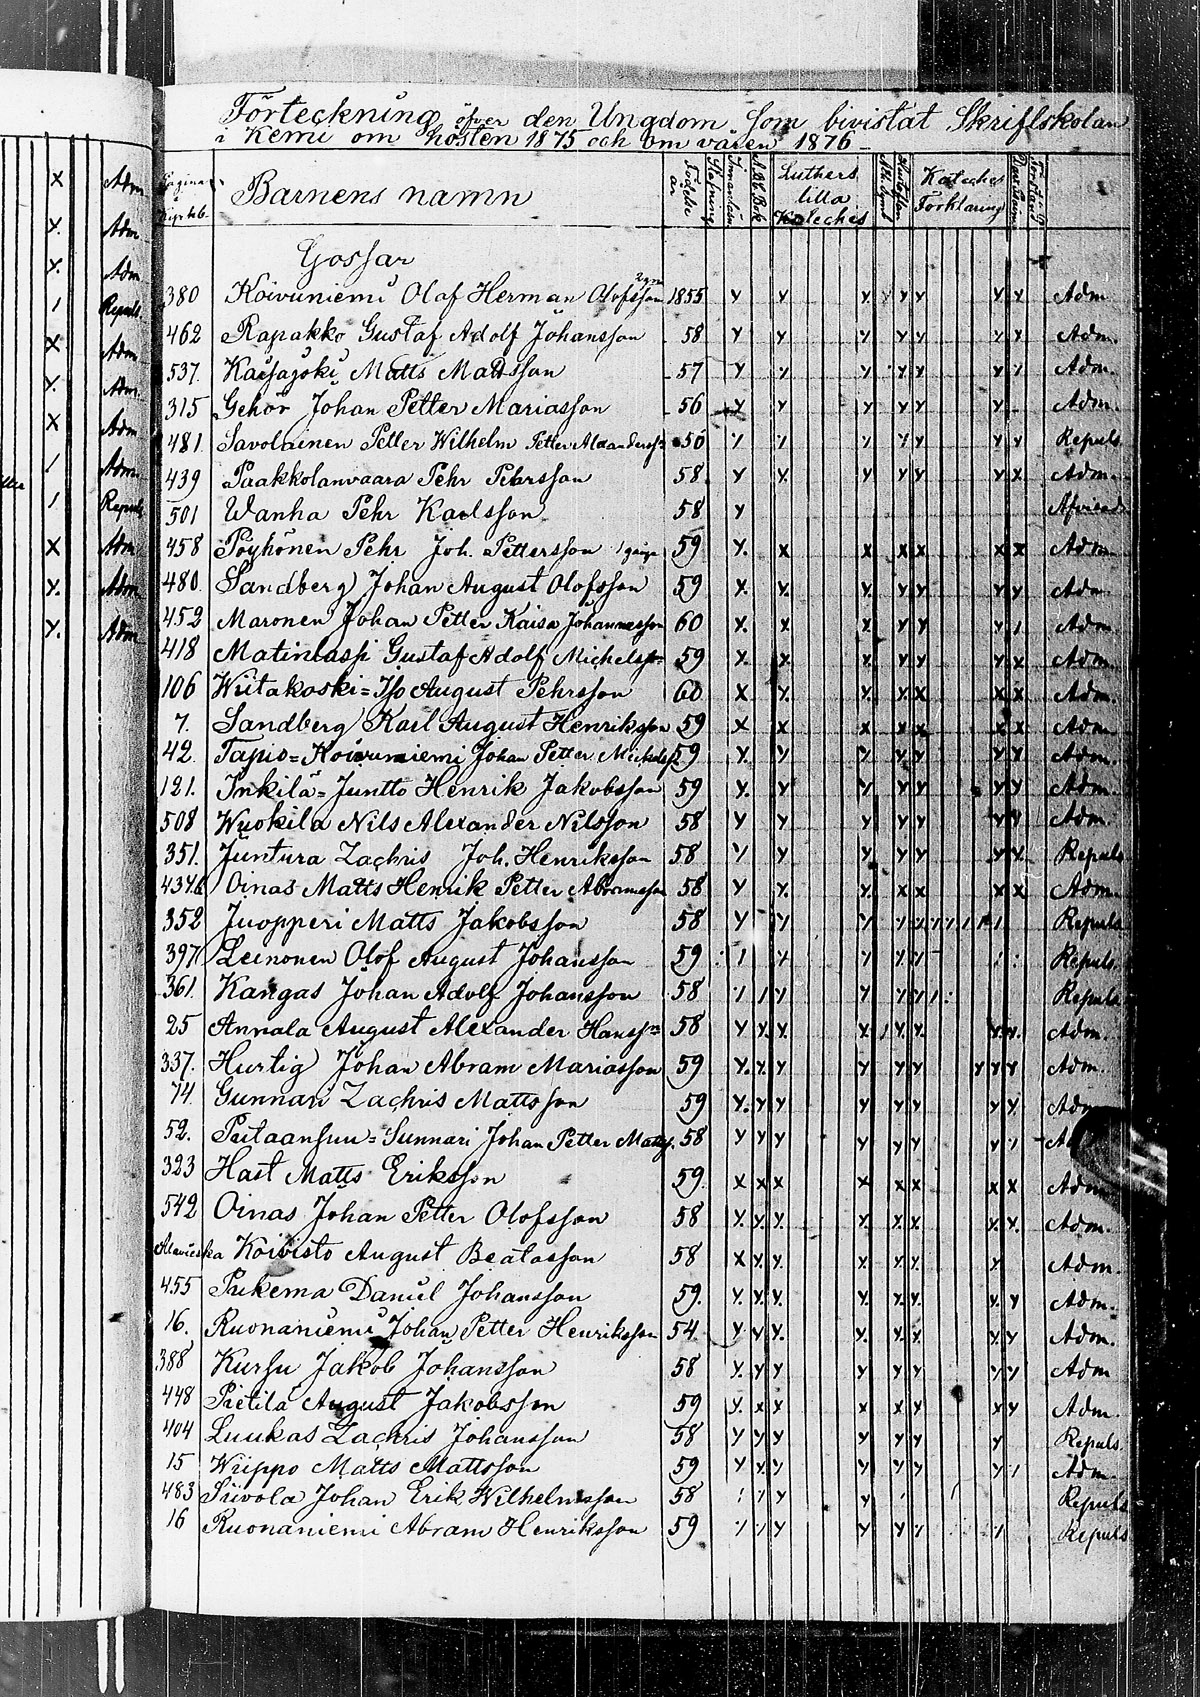 Förteckning öfver den Ungdom som bivistat Skriftskolan
i Kemi om hösten 1875 och om våren 1876
Pagina i Kyrkb. Barnens namn Födelse år Stafning Innanläsn. A.B.C. Bok Luthers lilla Kateches Athanas. Hustaflan Kateches Förklaring Dav. Psalm. Förstånd
Gossar
380 Koivuniemi Olof Herman Olofsson 2 gen 1855 Y Y Y Y Y Y Y Y Adm
462 Rapakko Gustaf Adolf Johansson 58 Y Y Y Y Y Y Y Adm.
537. Kaisajoki Matts Mattsson 57 Y Y Y Y Y Y / Adm.
315 Gehör Johan Petter Mariasson 56 Y Y Y Y Y Y Adm.
481. Savolainen Petter Wilhelm Petter Alexanderss. 56 Y Y Y Y Y Y Y Repuls
439 Paakkolanvaara Pehr Pehrsson 58. Y X Y Y Y Y X Adm.
501 Wanha Pehr Karlsson 58 Y
458 Pöyhönen Pehr Joh. Pettersson 1 gång 59 Y. X X X X X X Adm.
480. Sandberg Johan August Olofsson 59 X. X. Y. Y Y Y Y Adm.
452 Maronen Johan Petter Kaisa Johannesson 60 X. X X. Y Y Y / Adm.
418 Matinlassi Gustaf Adolf Michelss. 59 Y. X. X. Y Y Y X Adm.
106 Wiitakoski=Iso August Pehrsson 60 X X. X. X X X X Adm.
7. Sandberg Karl August Henriksson 59 X X X X X X X Adm.
42. Tapio=Koivuniemi Johan Petter Michelss. 59 Y. Y Y Y Y Y Y Adm.
121. Inkilä=Juntto Henrik Jakobsson 59 Y. Y Y Y Y Y Y Adm.
508 Wuokila Nils Alexander Nilsson 58 Y Y Y Y Y Y Y Adm.
351. Juntura Zachris Joh. Henriksson 58 Y Y Y. Y Y Y Y. Repuls
434 Oinas Matts Henrik Petter Abramsson 58 Y Y. Y X X X X Adm.
352 Juopperi Matts Jakobsson 58 Y Y Y Y Y Y / / / / Repuls
397. Leinonen Olof August Johansson 59 / Y Y Y Y / Repuls.
361. Kangas Johan Adolf Johansson 58 / / Y Y Y Y / Repuls
25 Annala August Alexander Hanss. 58 Y X. X. X / Y. X. Y. Y. Adm.
337. Hurtig Johan Abram Mariasson 59 Y. Y. Y Y Y Y Y Y Y Adm.
74. Gunnari Zachris Mattsson 59 Y. Y Y Y Y Y Y Y.
52. Putaansuu=Sunnari Johan Petter Matss. 58 Y Y Y Y Y Y Y /
323 Hast Matts Eriksson 59. X X X X X X X X Adm
542 Oinas Johan Petter Olofsson 58 Y. Y. Y. Y. Y. Y. Y. Y. Adm.
Alavieska Koivisto August Beatasson 58 X Y. Y. Y. Y. Y. Y Adm.
455 Pukema Daniel Johansson 59. Y. Y. Y. Y. Y. Y. Y. Y Adm.
16. Ruonaniemi Johan Petter Henriksson 54. Y Y Y. Y. Y. Y. Y. Y Adm.
388 Kursu Jakob Johansson 58 Y. Y Y Y Y Y Y Y Adm
448 Pietilä August Jakobsson 59 Y. X X X X Y X Y Adm.
404 Luukas Zachris Johansson 58 Y Y Y Y Y Y Y Repuls.
15 Wiippo Matts Mattsson 59 Y X Y Y Y Y Y / Adm.
483 Siivola Johan Erik Wilhelmsson 58 / / Y Y / / Repuls
16 Ruonaniemi Abram Henriksson 59 / / Y Y Y / / Repuls
X Adm
Y. Adm
Y. Adm
/ Repuls.
X Adm
Y. Adm
X Adm
/ Adm.
/ Repuls
X Adm
Y. Adm
Y. Adm